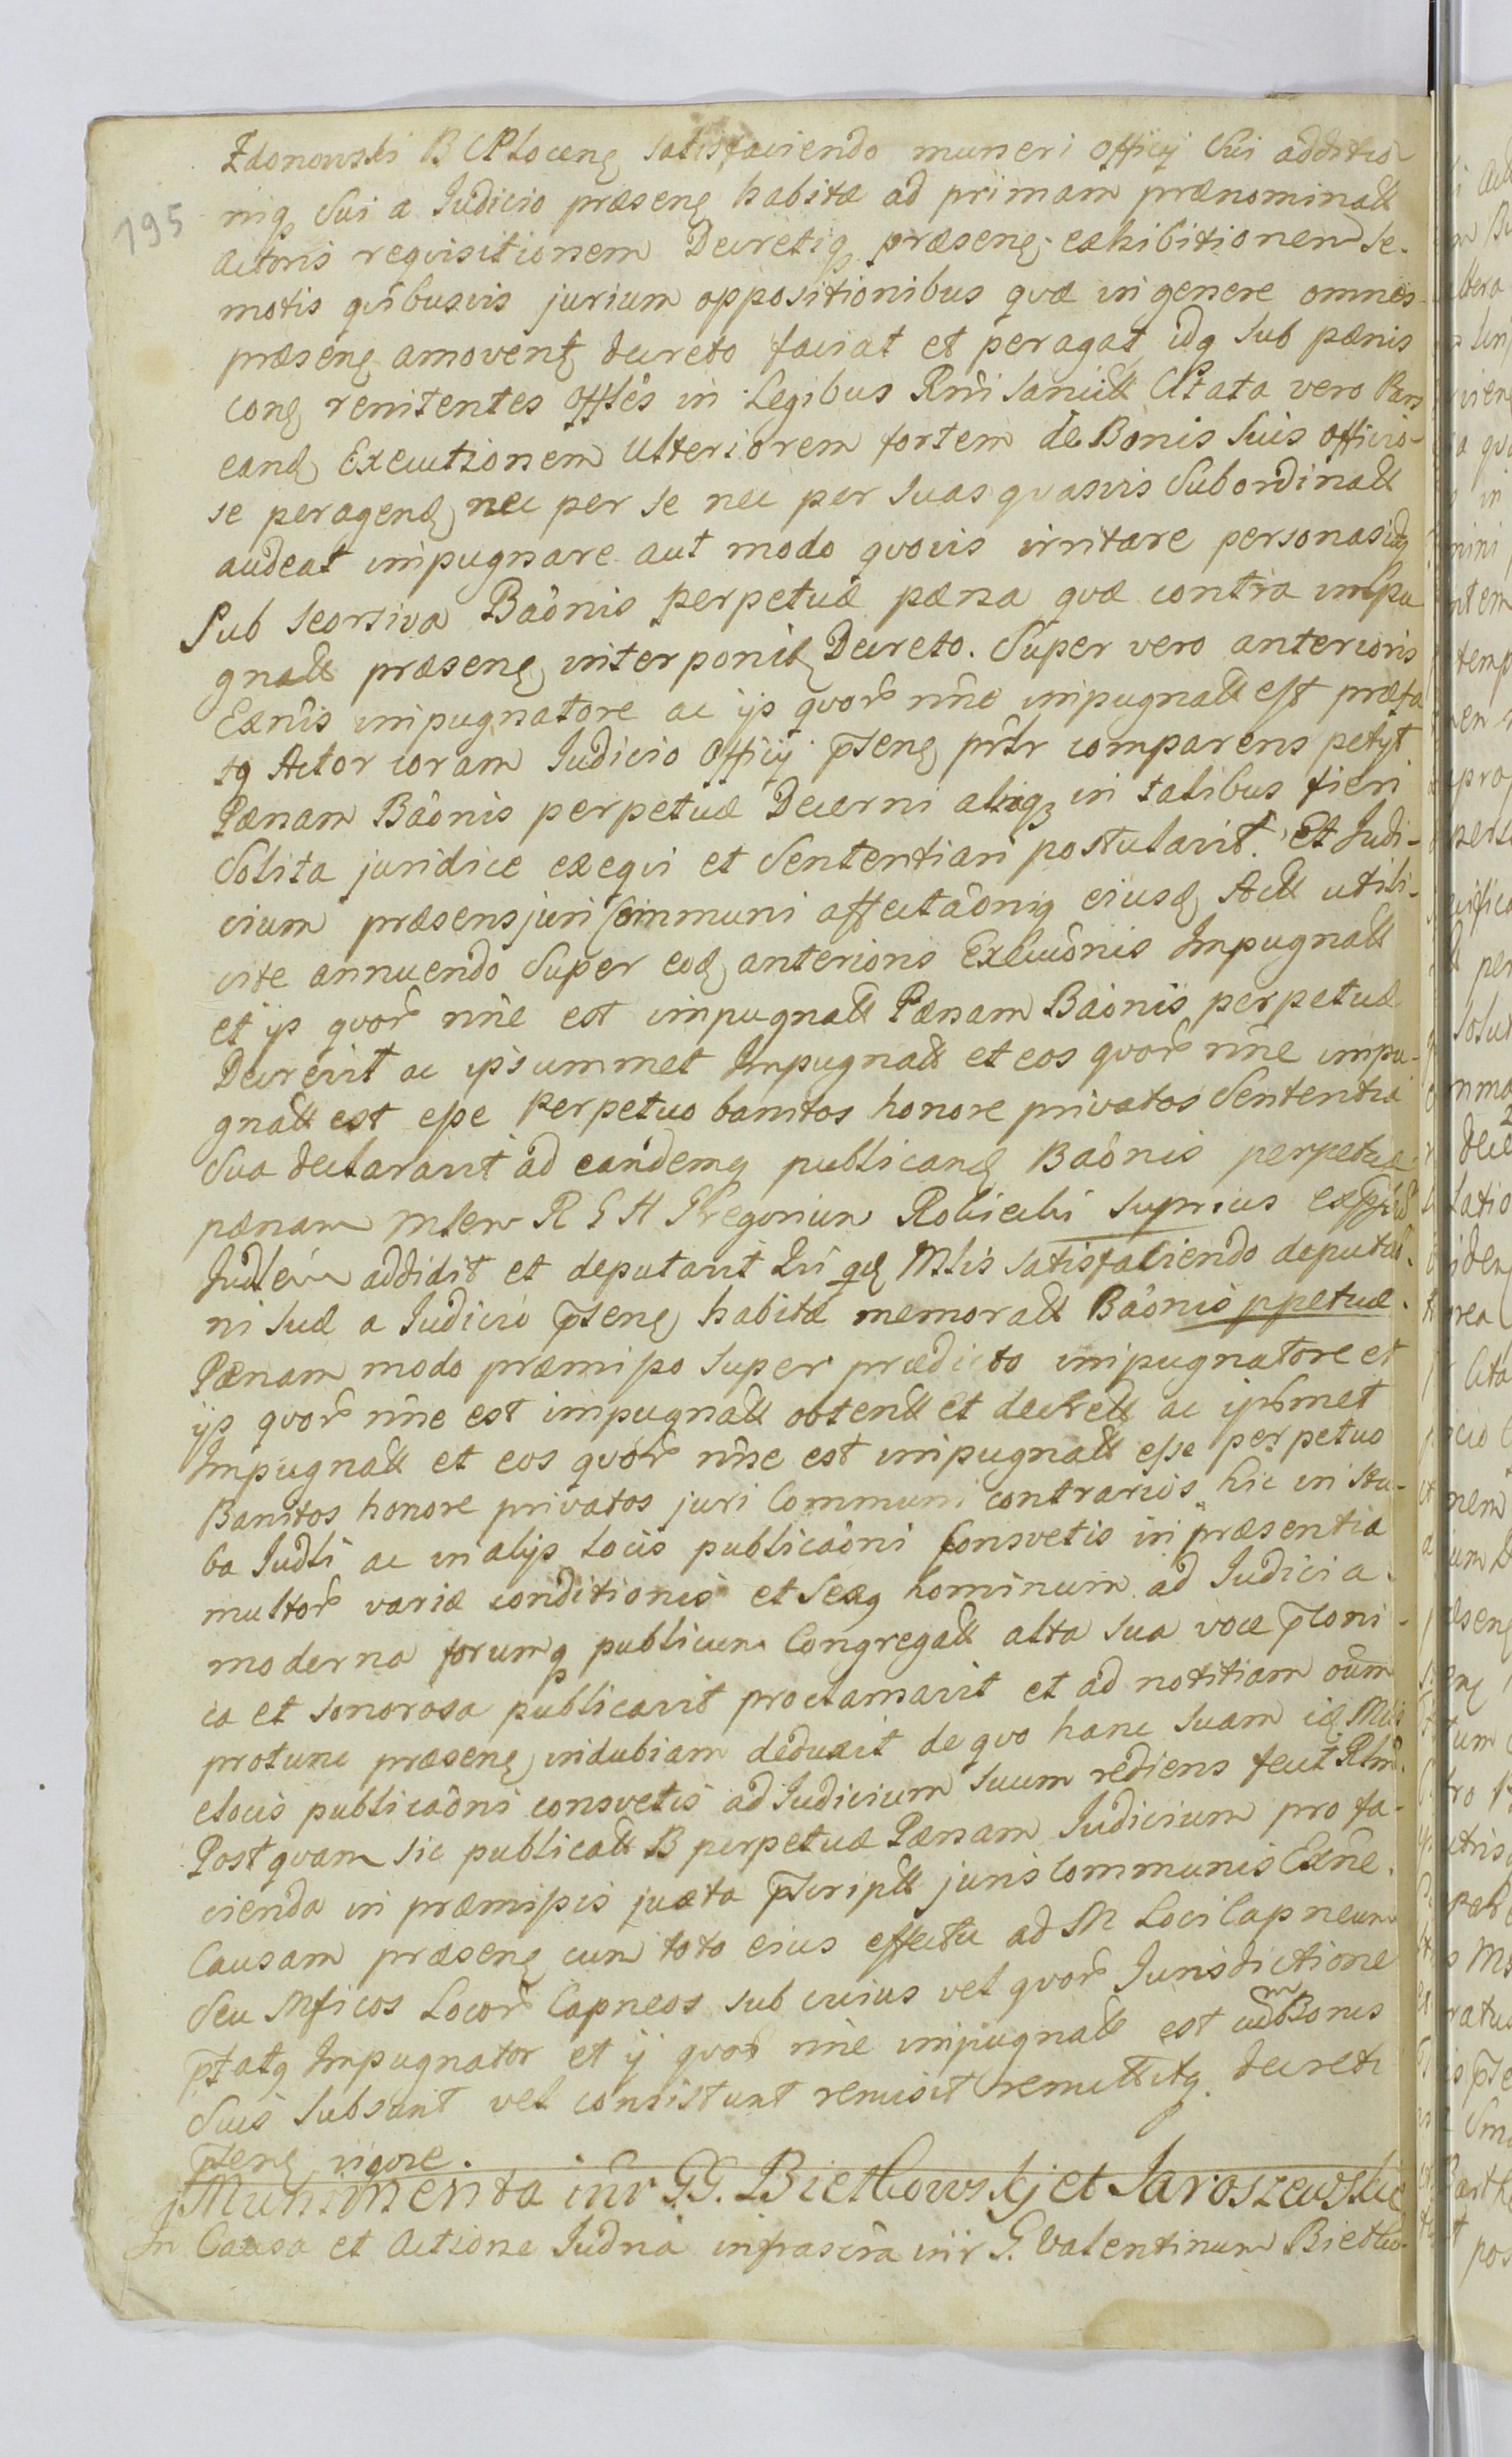 195
Zdonowski B C Plocen satisfaciendo muneri officij sui additio
niq sui a Judicio præsen habitæ ad primam prænominatt
actoris requisitionem Decretiq præsen exhibitionem se-
motis quibusvis jurium oppositionibus quæ in genere omnes
præsen amovent decreto faciat et peragat idq sub pænis
con renitentes offles in Legibus Rni sancitt Citata vero Pars
eand Executionem Ulteriorem fortem de Bonis suis officio-
se peragend nec per se nec per suas quasvis subordinatt
audeat impugnare aut modo quovis irritare personas idq
sub seorsiva Baônis perpetuæ pæna quæ contra impu
gnatt præsen interponit Decreto. Super vero anterioris
Exnîs impugnatore ac ijs quor nñe impugnatt est præfa
tq Actor coram Judicio officij pñsen prñlr comparens petijt
Pænam Baônis perpetuæ Decerni aliaq in talibus fieri
solita juridice exequi et sententiari postulavit. Et Judi-
cium præsens juri communi affectaôniq eiusd Actt utili-
ter annuendo super eod anterioris Execuônis Impugnatt
et ijs quor nñe est impugnatt Pænam Baônis perpetuæ
Decrevit ac ipsummet Impugnatt et eos quor nñe impu-
gnatt est esse perpetuo banitos honore privatos sententia
sua declaravit ad eandemq publicand Baônis perpetuæ
pænam Mlem R G H Gregorium Robiecki superius
Judlem addidit et deputavit Qui qd Mlis satisfaciendo deputaô-
ni suæ a Judicio pñsen habitæ memoratt Baônis ppetuæ
Pænam modo præmisso super prædicto impugnatore et
ijs quor nñe est impugnatt obtentt et decrett ac ipsmet
Impugnatt et eos quor nñe est impugnatt esse perpetuo
Banitos honore privatos juri Communi contrarios hic in stu-
ba Judli ac in alijs locis publicaôni consvetis in præsentia
multor variæ conditionis et sexq hominum ad Judicia
moderna forumq publicum Congregatt alta sua voce
ca et sonorosa publicavit proclamavit et ad notitiam oûm
protunc præsen indubiam deduxit de quo hanc suam id Mlis
e locis publicaôni consvetis ad Judicium suum rediens fecit Rlnê
Postquam sic publicatt B perpetuæ Pænam Judicium pro fa-
cienda in præmissis juxta pscriptt juris communis Exñe
Causam præsen cum toto eius effectu ad M Loci Capneum
seu Mficos Locor Capneos sub cuius vel quor Jurisdictione
pfatq Impugnator et ij quor nñe impugnatt est cum Bonis
suis subsunt vel consistunt remisit remittitq decreti
pñsen vigore.
Munimenta intr GG. Bietkowskj et Jaroszewskie
In Causa et Actione Judna infrascra intr G. Valentinum Bietko-